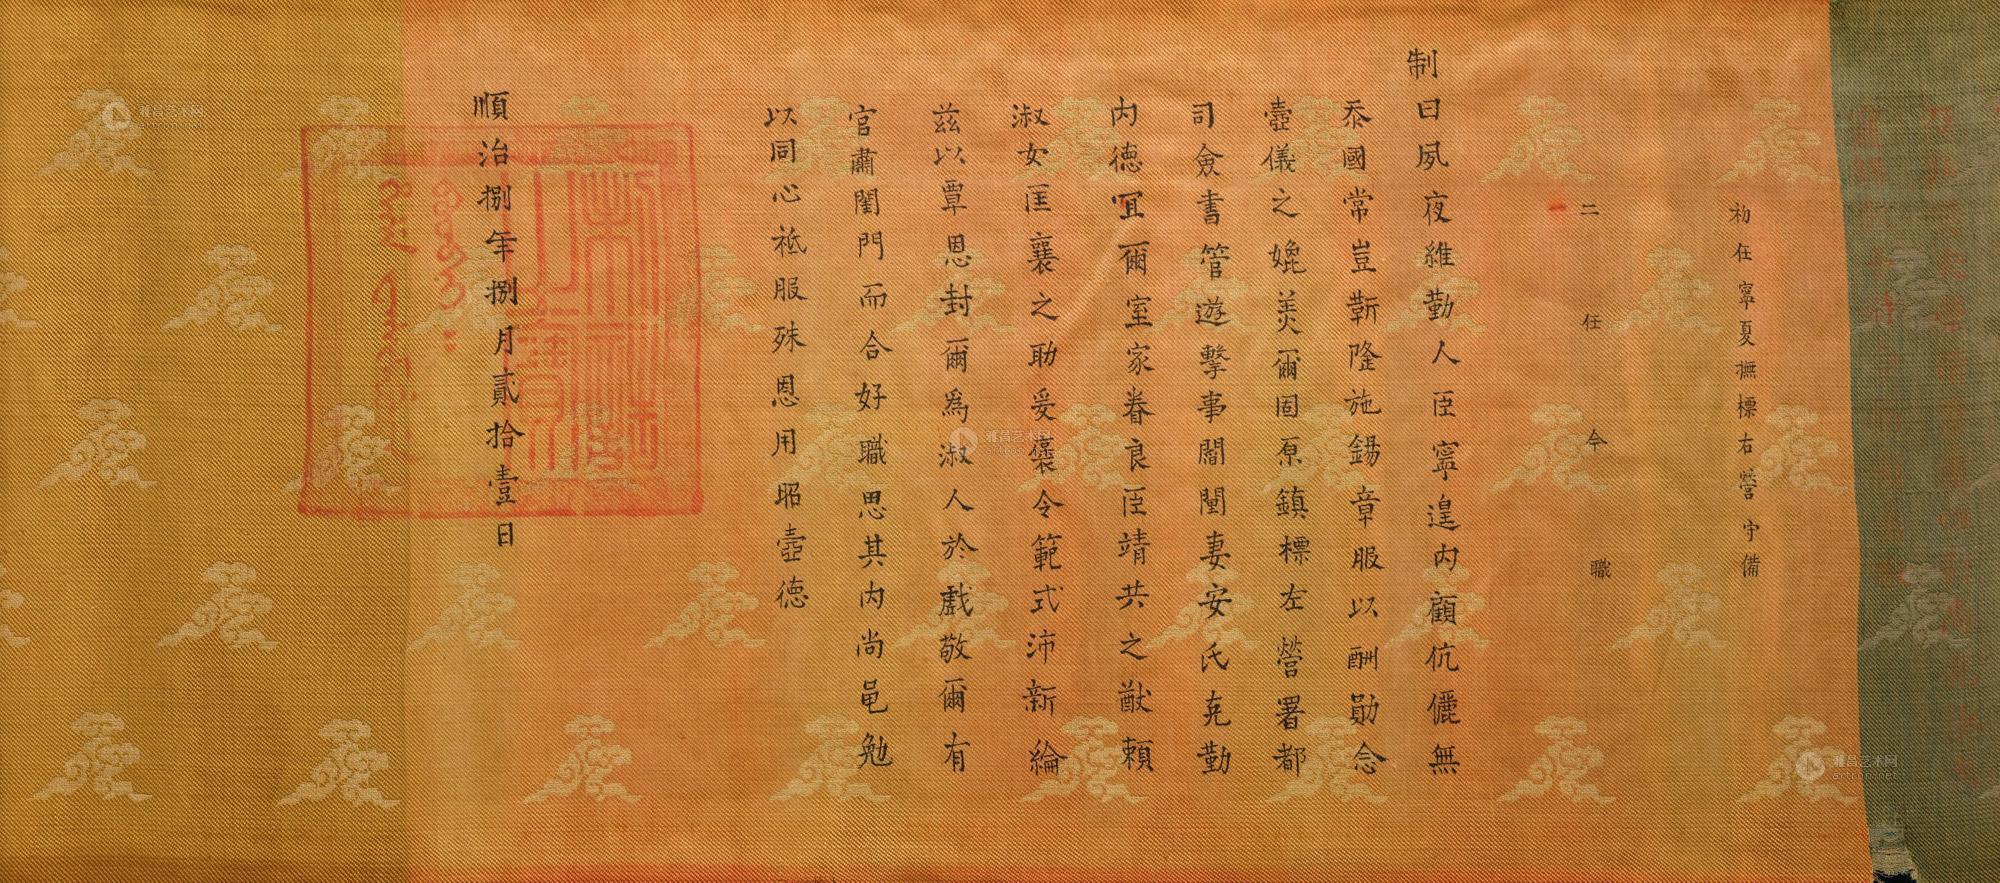 初任寧夏撫標右營守備
二任今職
一
制曰夙夜維勤人臣寧遑内顧伉儷無
忝國常豈靳隆施錫章服以酬勛念
壼儀之媲美爾固原鎮標左營署都
司僉書管遊擊事閻閏妻安氏克勤
内德宜爾室家眷良臣靖共之猷賴
淑女匡襄之助爰褒令範式沛新綸
兹以覃恩封爾為淑人於戲敬爾有
官肅閨門而合好職思其内尚黽勉
以同心祗服殊恩用昭壼德
順治捌年捌月貳拾壹日
制誥之寶
雅昌艺术网
artron.net
雅昌艺术网
artron.net
雅昌艺术网
artron.net